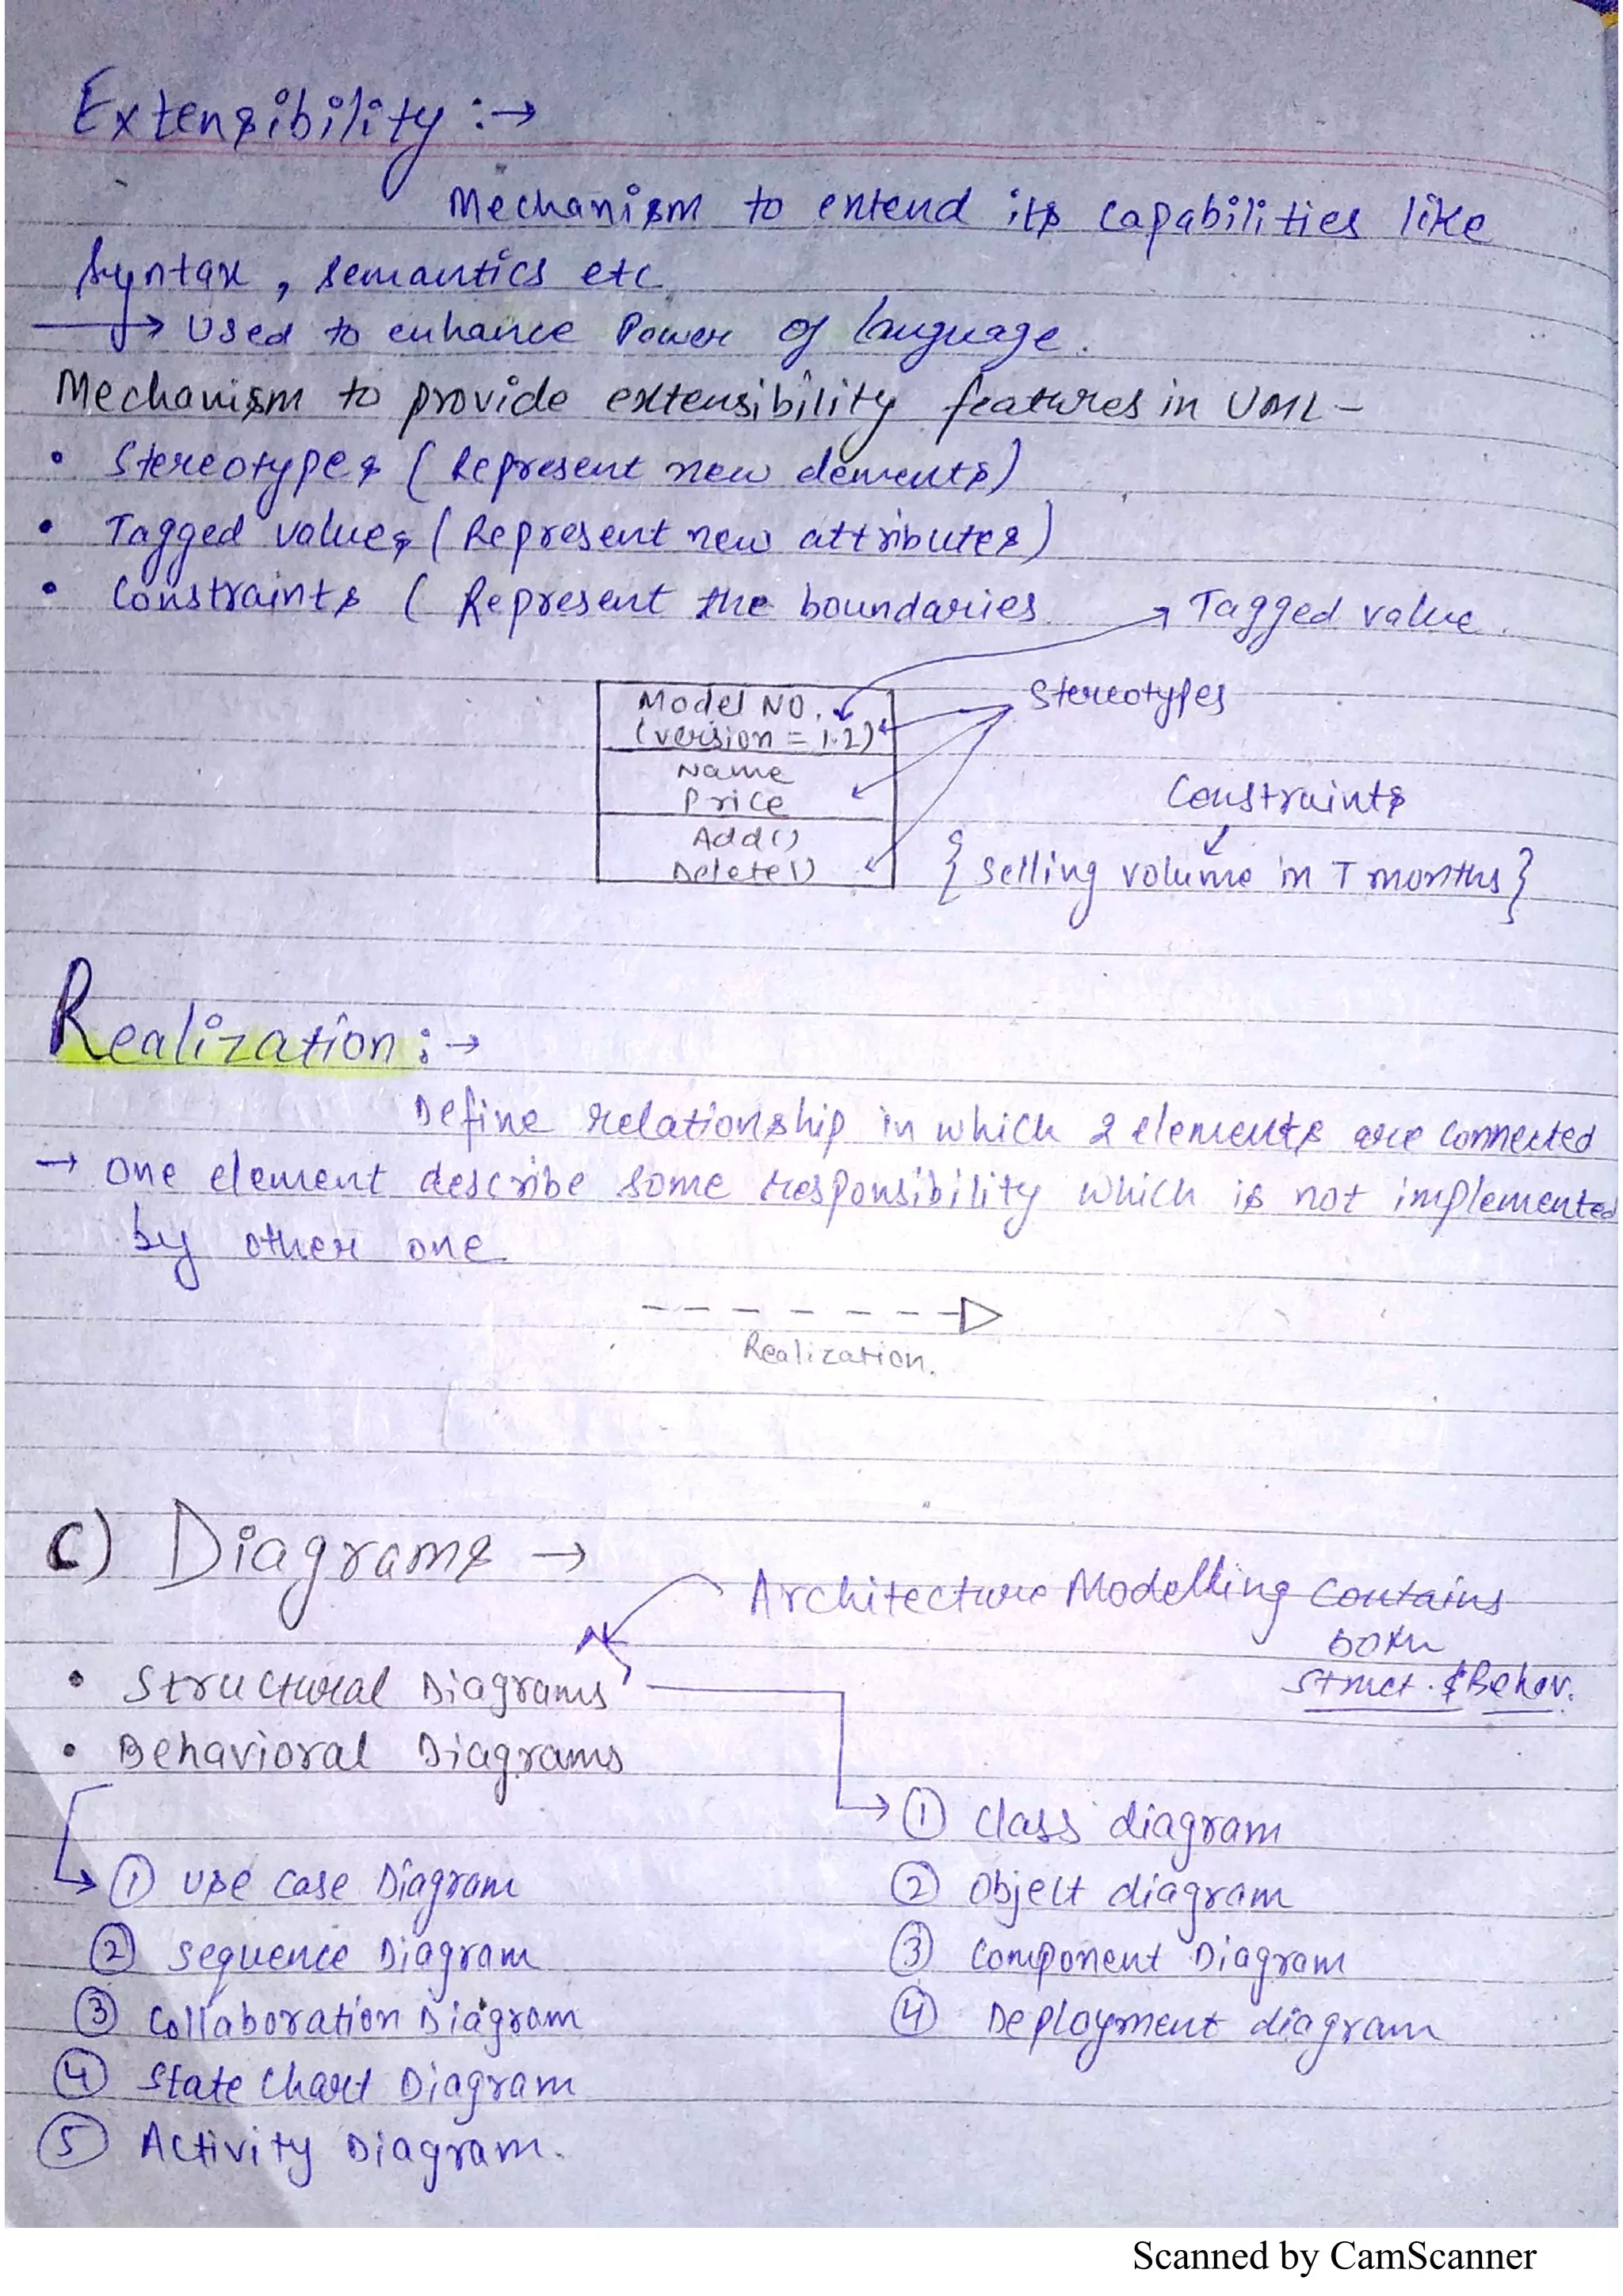 Extensibility :→
Mechanism to extend its capabilities like
syntax, semantics etc
→ Used to enhance Power of language.
Mechanism to provide extensibility features in UML –
• Stereotypes ( Represent new elements)
• Tagged values ( Represent new attributes)
• Constraints ( Represent the boundaries
Tagged value.
Model NO.
(version = 1.2)
Stereotypes
Name
Price
Constraints
Add()
Delete()
{ Selling volume in T months }
Realization :→
Define relationship in which 2 elements are connected
→ one element describe some responsibility which is not implemented
by other one.
Realization.
C) Diagrams →
Architecture Modelling Contains
both
struct. & Behav.
• Structural Diagrams
• Behavioral Diagrams
① Class diagram
② Object diagram
③ Component Diagram
④ Deployment diagram
① Use Case Diagram
② Sequence Diagram
③ Collaboration Diagram
④ State Chart Diagram
⑤ Activity Diagram.
Scanned by CamScanner